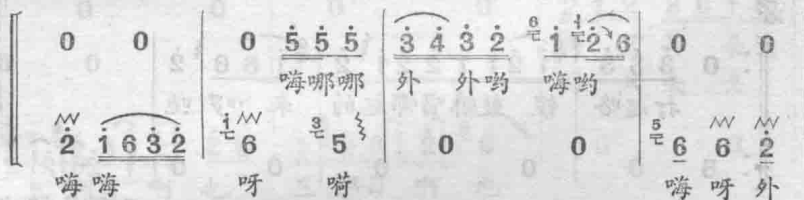 0 0 | 0 5̇ 5̇ 5̇ | 3̇ 4̇ 3̇ 2̇ 6 1̇ 1̇ 2̇ 6 | 0 0
嗨哪哪 外 外哟 嗨哟
2̇ 1̇ 6 3̇ 2̇ | 1̇ 6 3 5 | 0 0 | 5 6 6 2̇
嗨 嗨 呀 嗬 嗨 呀 外